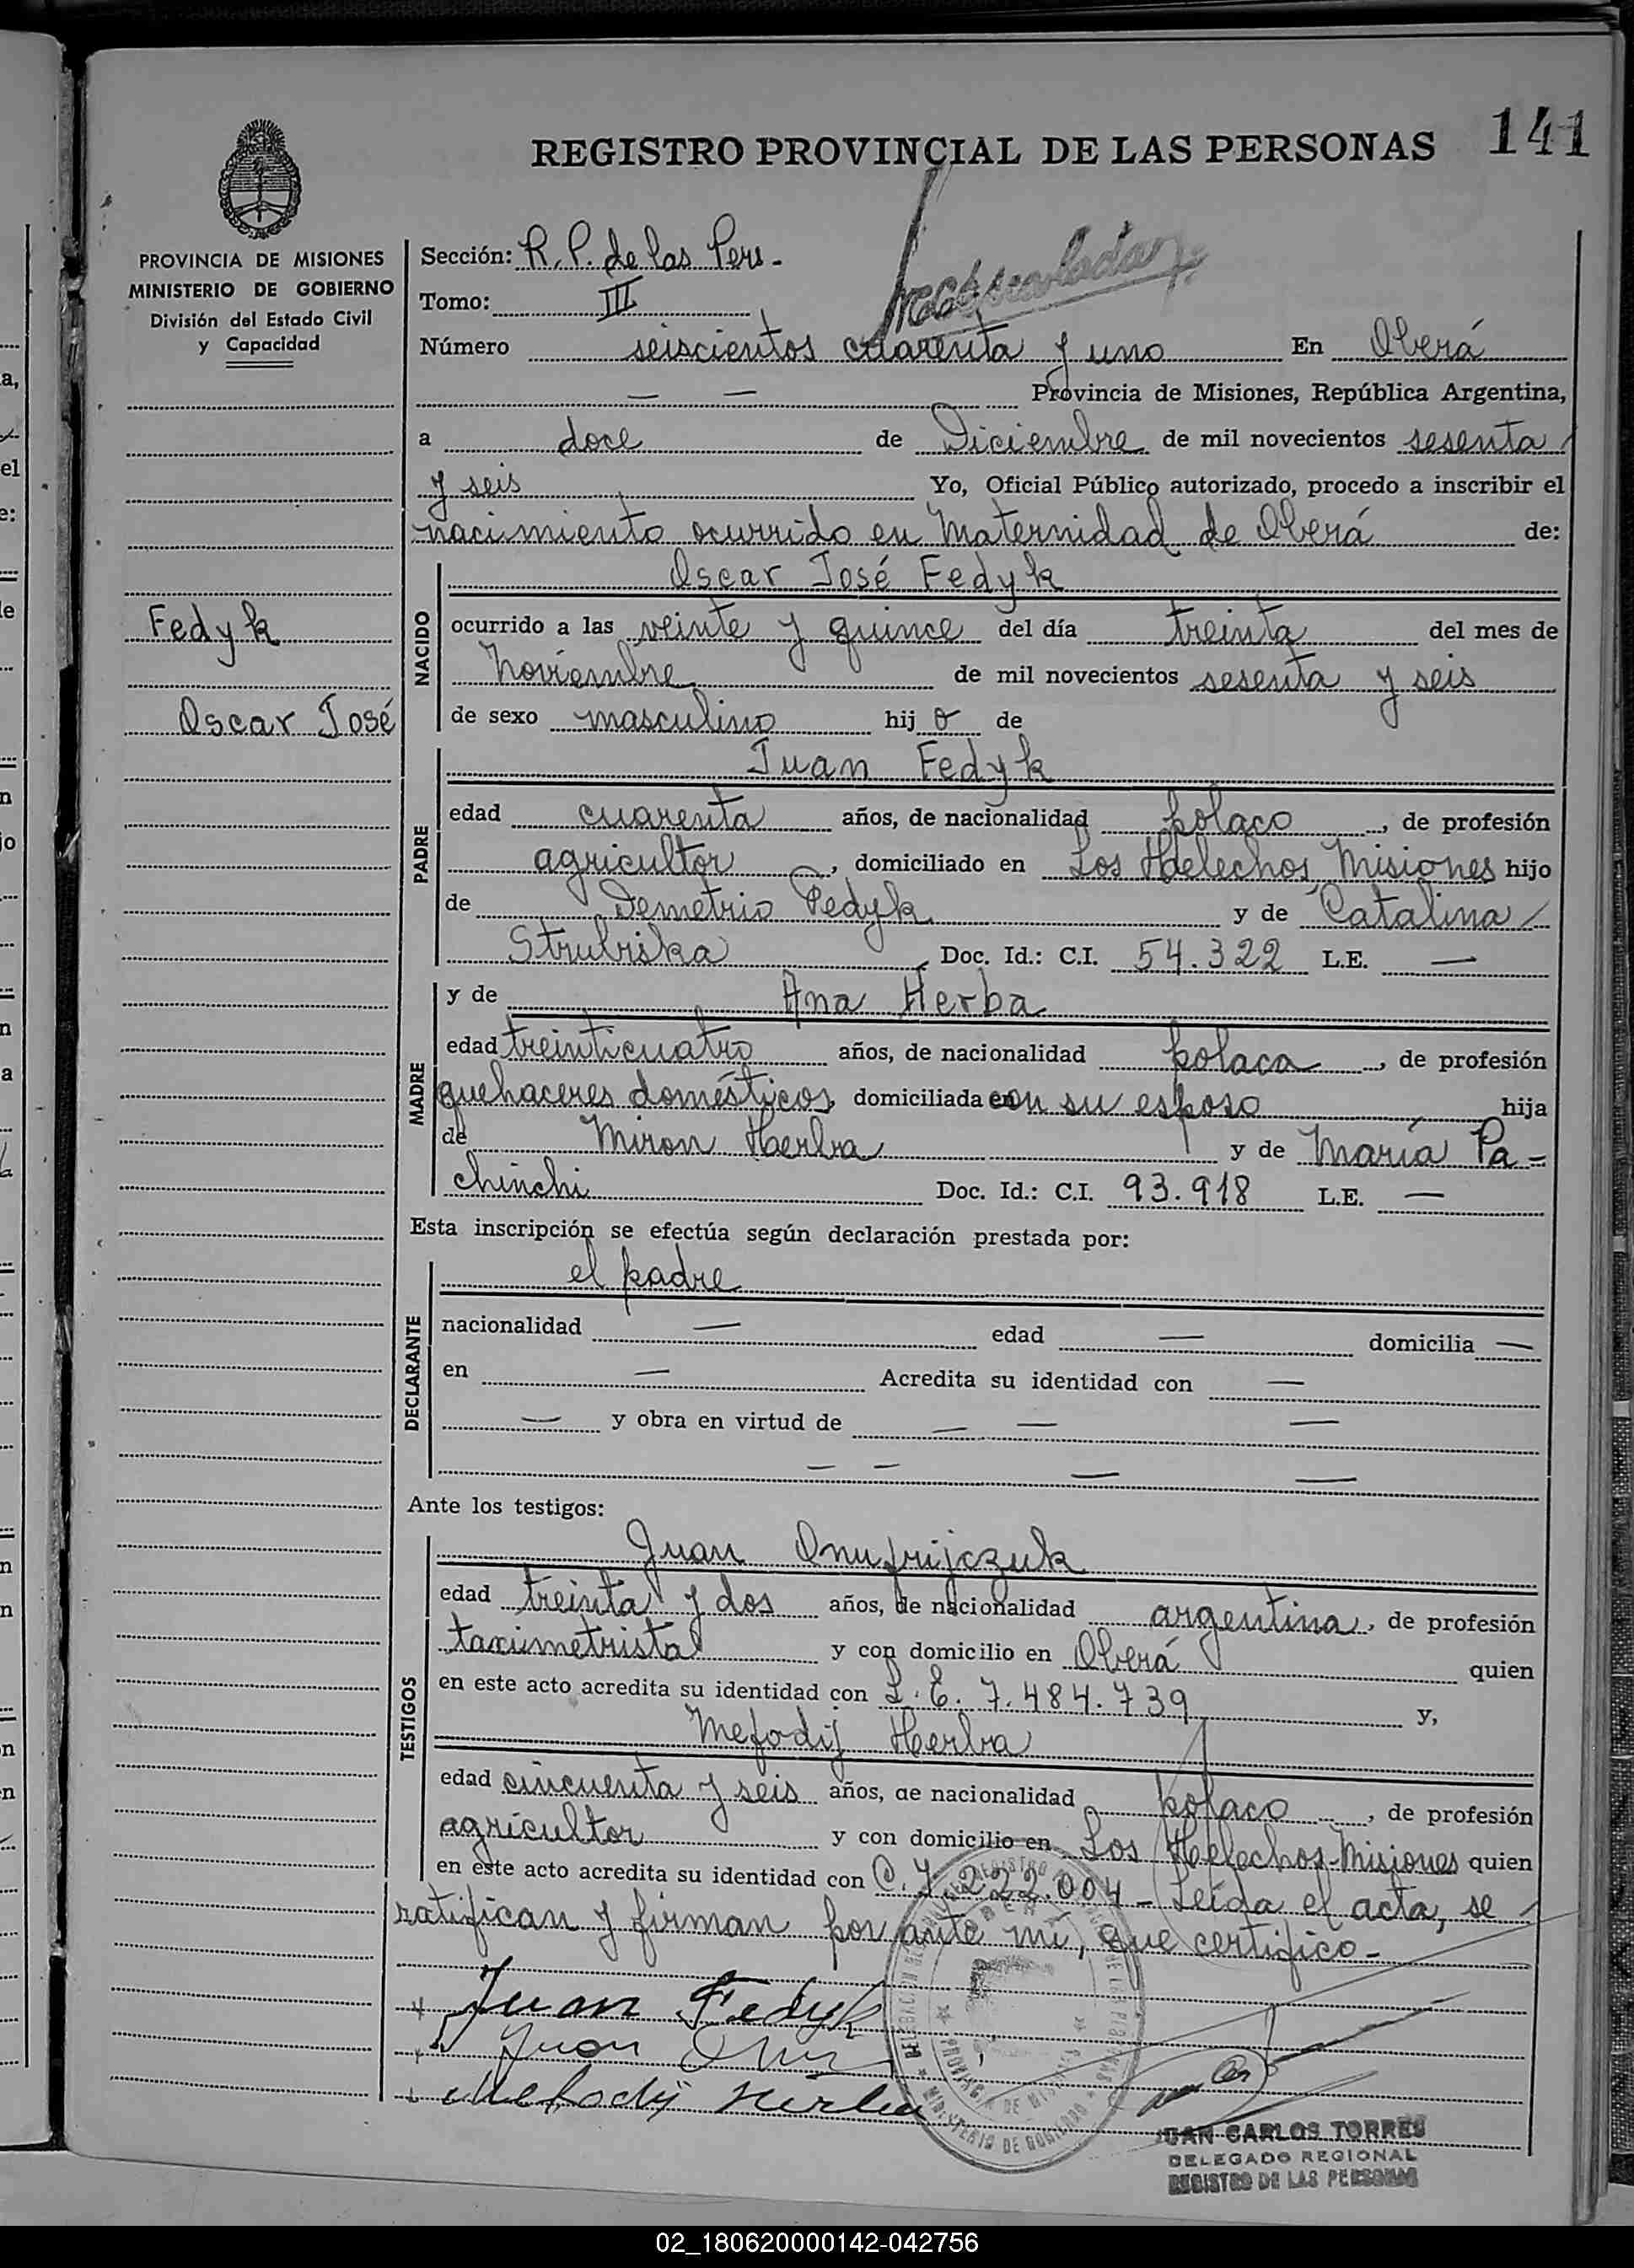 141
REGISTRO PROVINCIAL DE LAS PERSONAS
PROVINCIA DE MISIONES
MINISTERIO DE GOBIERNO
División del Estado Civil
y Capacidad
Fedyk
Oscar José
Sección: R. P. de las Pers.-
Tomo: III
Número seiscientos cuarenta y uno En Oberá
— — Provincia de Misiones, República Argentina,
a doce de Diciembre de mil novecientos sesenta
y seis Yo, Oficial Público autorizado, procedo a inscribir el
nacimiento ocurrido en Maternidad de Oberá de:
NACIDO
Oscar José Fedyk
ocurrido a las veinte y quince del día treinta del mes de
Noviembre de mil novecientos sesenta y seis
de sexo masculino hijo de
PADRE
Juan Fedyk
edad cuarenta años, de nacionalidad polaco, de profesión
agricultor, domiciliado en Los Helechos, Misiones hijo
de Demetrio Fedyk y de Catalina
Strubiska Doc. Id.: C.I. 54.322 L.E. —
MADRE
y de Ana Herba
edad treinticuatro años, de nacionalidad polaca, de profesión
quehaceres domésticos, domiciliada con su esposo hija
de Miron Herba y de María Pa-
chinchi Doc. Id.: C.I. 93.918 L.E. —
Esta inscripción se efectúa según declaración prestada por:
DECLARANTE
el padre
nacionalidad — edad — domicilia —
en — Acredita su identidad con —
— y obra en virtud de — — —
— — — —
Ante los testigos:
TESTIGOS
Juan Onufrijczuk
edad treinta y dos años, de nacionalidad argentina, de profesión
taximetrista y con domicilio en Oberá quien
en este acto acredita su identidad con L.E. 7.484.739 y,
Mefodij Herba
edad cincuenta y seis años, de nacionalidad polaco, de profesión
agricultor y con domicilio en Los Helechos-Misiones quien
en este acto acredita su identidad con C.I. 222.004 - Leída el acta, se
ratifican y firman por ante mí, que certifico-
Juan Fedyk
Juan
Mefodij Herba
JUAN CARLOS TORRES
DELEGADO REGIONAL
REGISTRO DE LAS PERSONAS
02_180620000142-042756